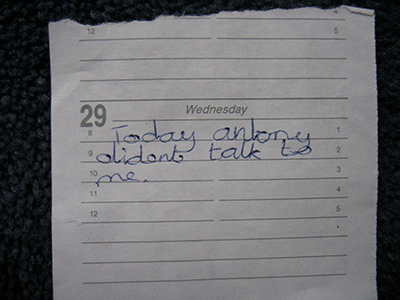 12 5
Wednesday
29
8 Today antony 1
9 didont talk to 2
10 me. 3
11 4
12 5